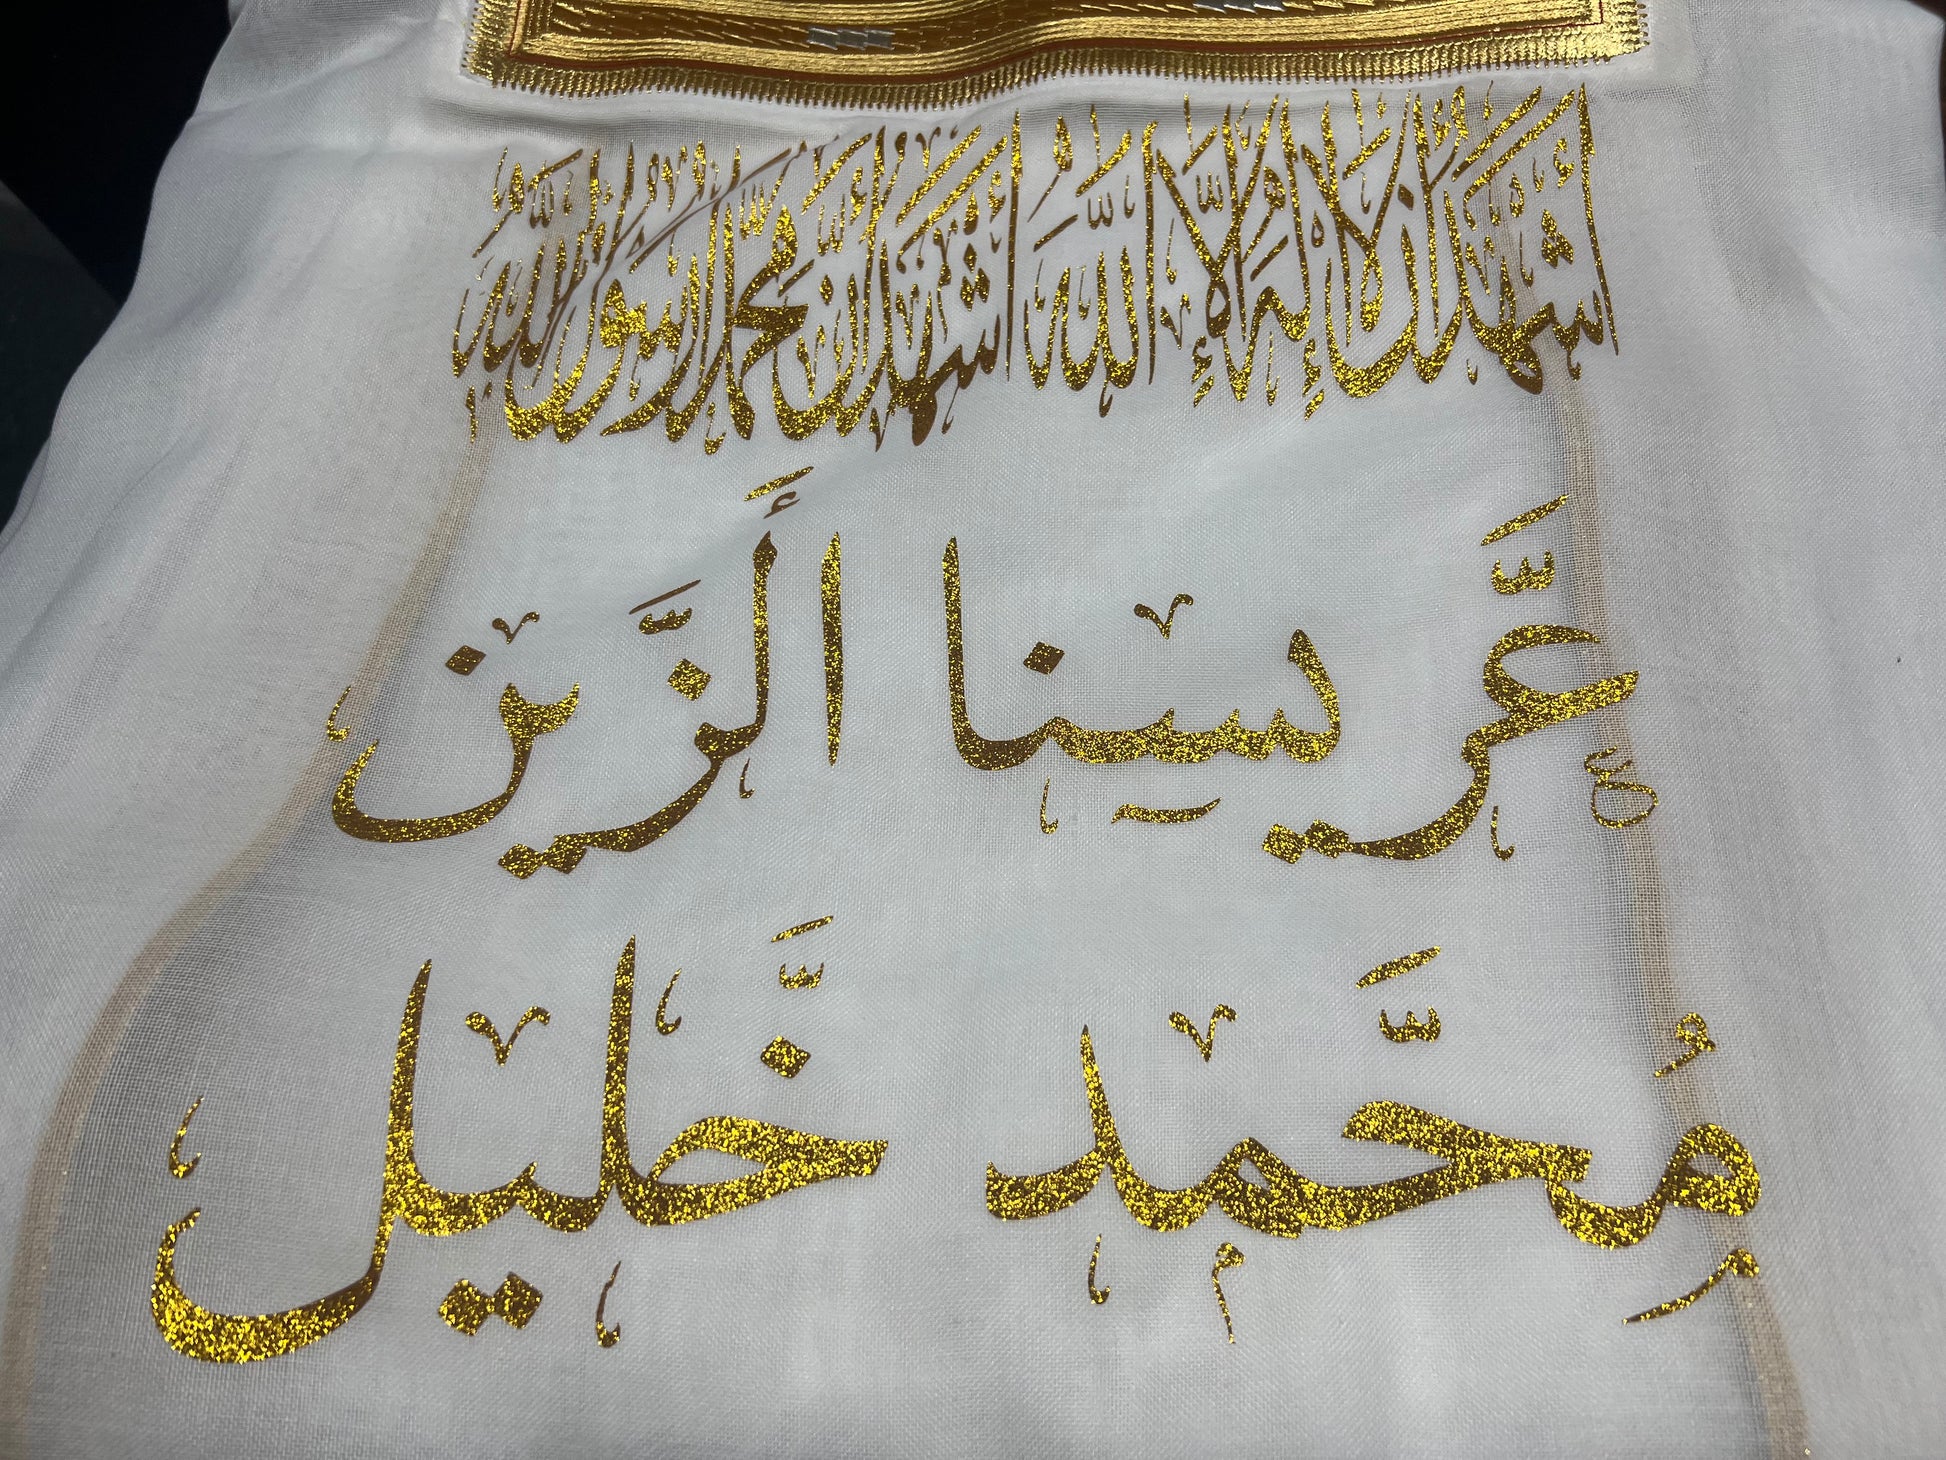 أشهد أن لا إله إلا الله أشهد أن محمدا رسول الله
عَرِّيسِينا اَلزَّيْن
مُحَمَّد خَلِيل